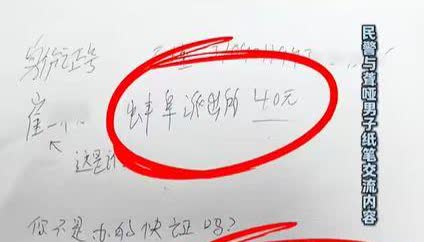 身份证号
崔一个
蚌阜派出所 40元
这是
你不是办的快证吗?
民警与聋哑男子纸笔交流内容